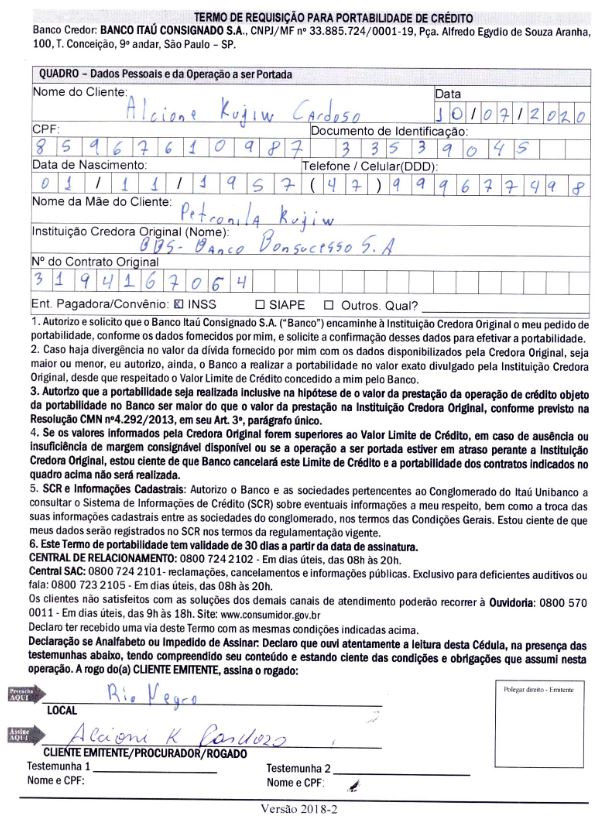 TERMO DE REQUISIÇÃO PARA PORTABILIDADE DE CRÉDITO
Banco Credor: BANCO ITAÚ CONSIGNADO S.A., CNPJ/MF nº 33.885.724/0001-19, Pça. Alfredo Egydio de Souza Aranha,
100, T. Conceição, 9º andar, São Paulo – SP.
QUADRO – Dados Pessoais e da Operação a ser Portada
Nome do Cliente: Alcione Kujiw Cardoso Data 10/07/2020
CPF: 85967610987 Documento de Identificação: 33539045
Data de Nascimento: 01/11/1957 Telefone / Celular(DDD): (47) 999677498
Nome da Mãe do Cliente: Petronila Kujiw
Instituição Credora Original (Nome): BBS - Banco Bonsucesso S.A
Nº do Contrato Original
3194167064
Ent. Pagadora/Convênio: ☒ INSS ☐ SIAPE ☐ Outros. Qual?
1. Autorizo e solicito que o Banco Itaú Consignado S.A. (“Banco”) encaminhe à Instituição Credora Original o meu pedido de
portabilidade, conforme os dados fornecidos por mim, e solicite a confirmação desses dados para efetivar a portabilidade.
2. Caso haja divergência no valor da dívida fornecido por mim com os dados disponibilizados pela Credora Original, seja
maior ou menor, eu autorizo, ainda, o Banco a realizar a portabilidade no valor exato divulgado pela Instituição Credora
Original, desde que respeitado o Valor Limite de Crédito concedido a mim pelo Banco.
3. Autorizo que a portabilidade seja realizada inclusive na hipótese de o valor da prestação da operação de crédito objeto
da portabilidade no Banco ser maior do que o valor da prestação na Instituição Credora Original, conforme previsto na
Resolução CMN nº4.292/2013, em seu Art. 3º, parágrafo único.
4. Se os valores informados pela Credora Original forem superiores ao Valor Limite de Crédito, em caso de ausência ou
insuficiência de margem consignável disponível ou se a operação a ser portada estiver em atraso perante a Instituição
Credora Original, estou ciente de que Banco cancelará este Limite de Crédito e a portabilidade dos contratos indicados no
quadro acima não será realizada.
5. SCR e Informações Cadastrais: Autorizo o Banco e as sociedades pertencentes ao Conglomerado do Itaú Unibanco a
consultar o Sistema de Informações de Crédito (SCR) sobre eventuais informações a meu respeito, bem como a troca das
suas informações cadastrais entre as sociedades do conglomerado, nos termos das Condições Gerais. Estou ciente de que
meus dados serão registrados no SCR nos termos da regulamentação vigente.
6. Este Termo de portabilidade tem validade de 30 dias a partir da data de assinatura.
CENTRAL DE RELACIONAMENTO: 0800 724 2102 - Em dias úteis, das 08h às 20h.
Central SAC: 0800 724 2101- reclamações, cancelamentos e informações públicas. Exclusivo para deficientes auditivos ou
fala: 0800 723 2105 - Em dias úteis, das 08h às 20h.
Os clientes não satisfeitos com as soluções dos demais canais de atendimento poderão recorrer à Ouvidoria: 0800 570
0011 - Em dias úteis, das 9h às 18h. Site: www.consumidor.gov.br
Declaro ter recebido uma via deste Termo com as mesmas condições indicadas acima.
Declaração se Analfabeto ou Impedido de Assinar: Declaro que ouvi atentamente a leitura desta Cédula, na presença das
testemunhas abaixo, tendo compreendido seu conteúdo e estando ciente das condições e obrigações que assumi nesta
operação. A rogo do(a) CLIENTE EMITENTE, assina o rogado:
Preencha AQUI Rio Negro
LOCAL
Polegar direito - Emitente
Assine AQUI Alcioni K Cardozo
CLIENTE EMITENTE/PROCURADOR/ROGADO
Testemunha 1 Testemunha 2
Nome e CPF: Nome e CPF:
Versão 2018-2